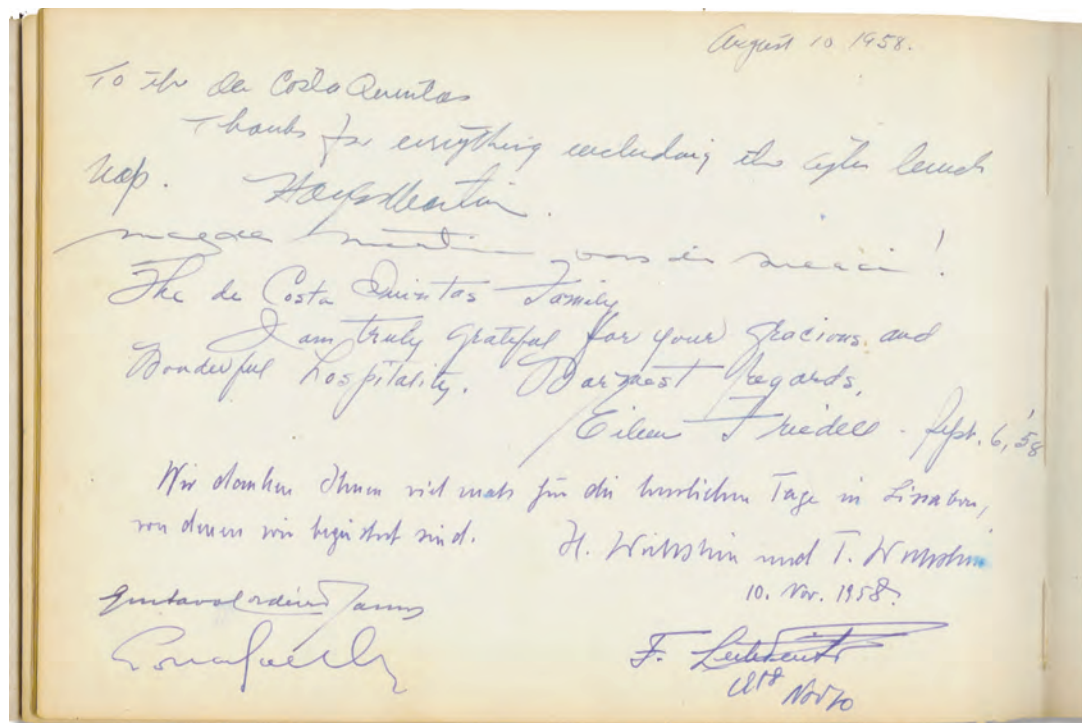 August 10 1958.
To the de Costa Quintas
Thanks for everything including the after lunch
nap. Hayes Martin.
Martin vous dis merci!
The de Costa Quintas Family
I am truly grateful for your gracious and
Wonderful hospitality. Warmest regards,
Eileen Friedell - Sept. 6, '58
Wir danken Ihnen vielmals für die herrlichen Tage in Lissabon,
von denen wir begeistert sind. H. und T.
10. Nov. 1958.
F.
1958
Nov 10